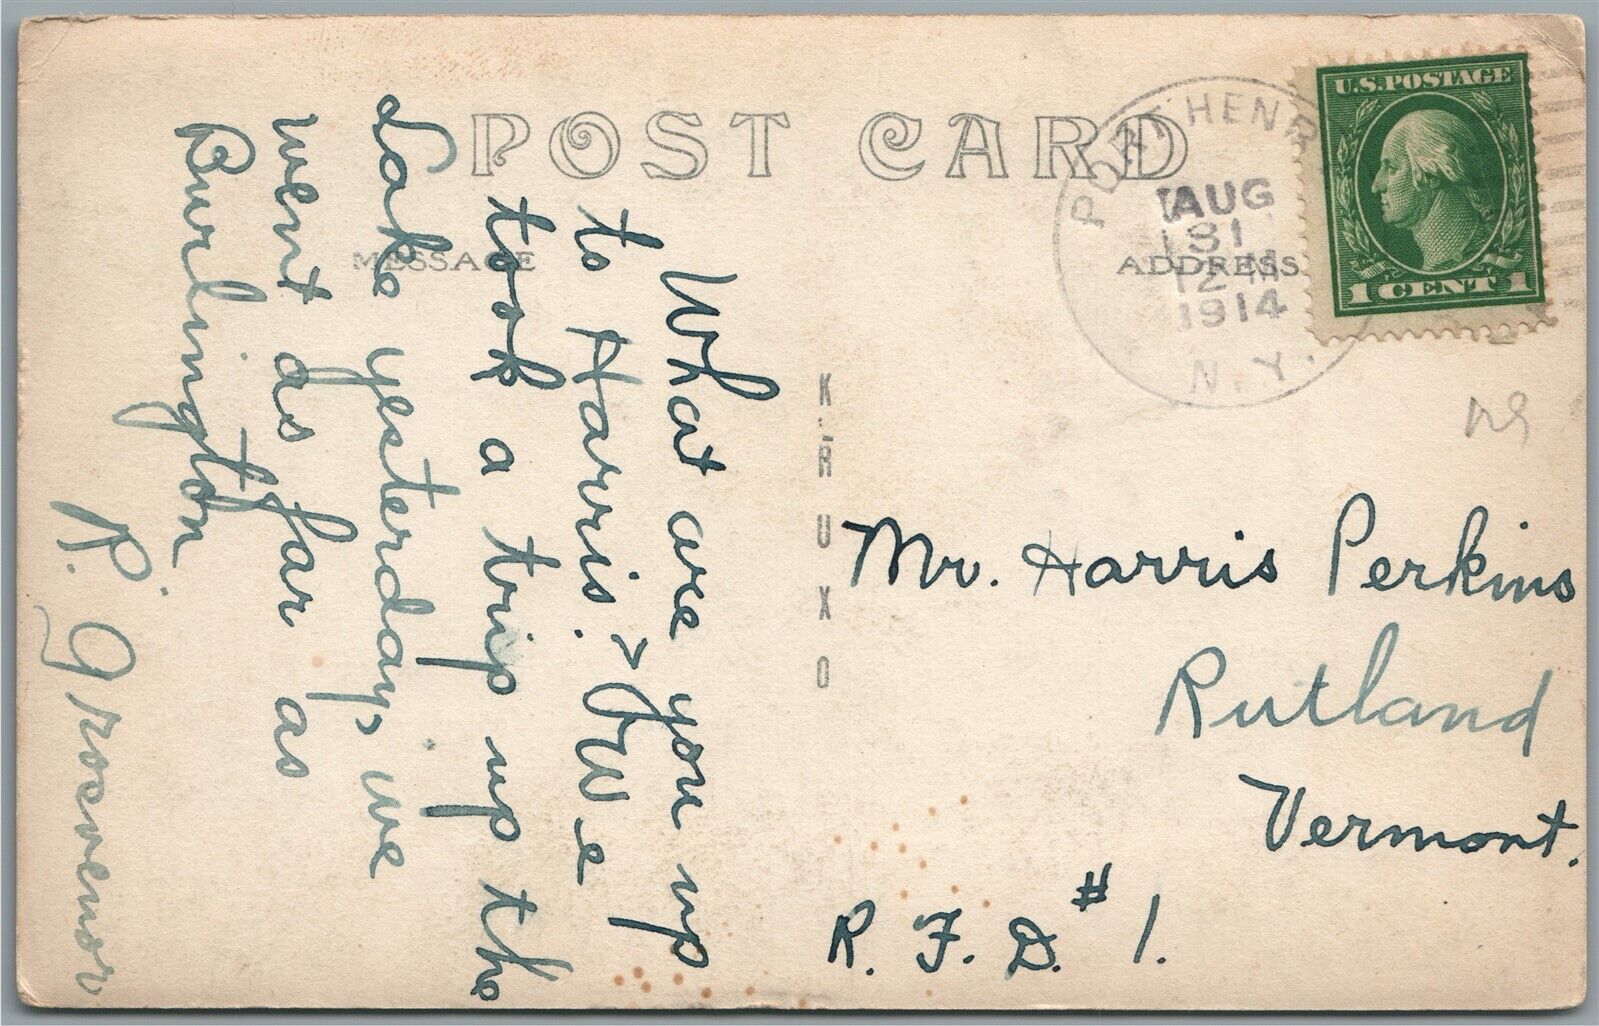 POST CARD
MESSAGE
ADDRESS
PORT HENRY
AUG
31
12 M
1914
N.Y.
U.S. POSTAGE
1 CENT 1
KRUXO
What are you up
to Harris? We
took a trip up the
Lake yesterday, we
went as far as
Burlington
R. Grosvenor
Mr. Harris Perkins
Rutland
Vermont.
R. F. D. # 1.